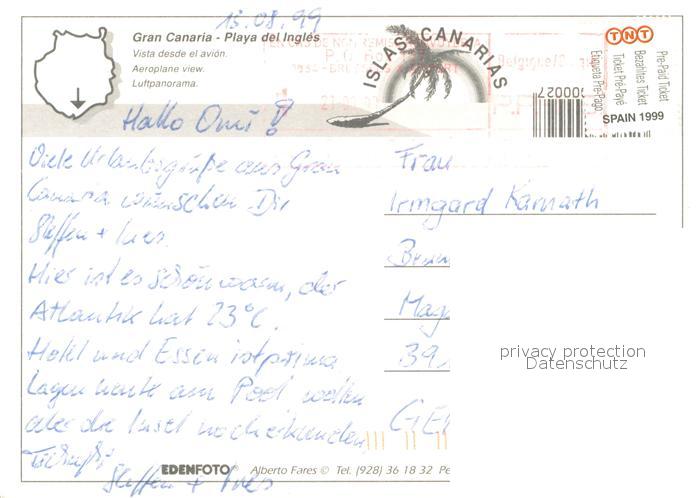 13.08.99
Gran Canaria - Playa del Inglés
Vista desde el avión.
Aeroplane view.
Luftpanorama.
ISLAS CANARIAS
TNT
Pre-Paid Ticket
Bezahltes Ticket
Ticket Pré-Payé
Etiqueta Pre-Pago
700002
SPAIN 1999
Hallo Omi!
Viele Urlaubsgrüße aus Gran
Canaria wünschen Dir
Steffen + Ines.
Hier ist es schön warm, der
Atlantik hat 23°C.
Hotel und Essen ist prima
Lagen heute am Pool wollen
aber die Insel noch erkunden
Tschüß
Steffen + Ines
Frau
Irmgard Karnath
Mag
39
GE
privacy protection
Datenschutz
EDENFOTO Alberto Fares © Tel. (928) 36 18 32